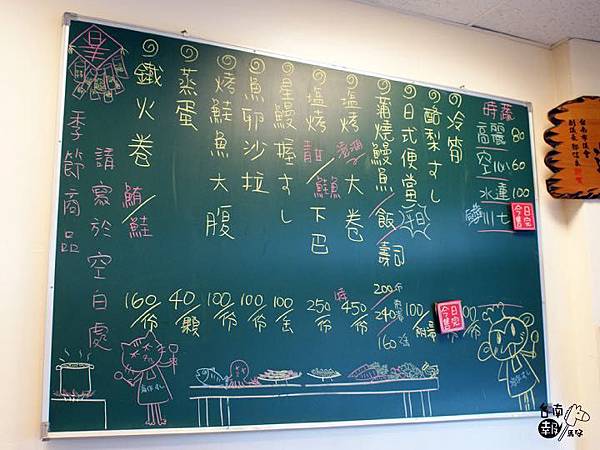 時蔬
高麗 80
空心 60
水蓮 100
川七
今日售完
◎冷筍
◎酪梨すし
◎日式便當
◎蒲燒鰻魚/飯 壽司
◎塩烤 大卷
◎塩烤 鮭魚 下巴
◎星鰻握すし
◎魚卵沙拉
◎烤鮭魚大腹
◎蒸蛋
◎鐵火卷
鮪/鮭
請寫於空白處
季節商品
160/份
40/顆
100/份
100/份
100/盒
250/份
450/份
200/份
240
160
100
今日售完
台南
報
馬仔